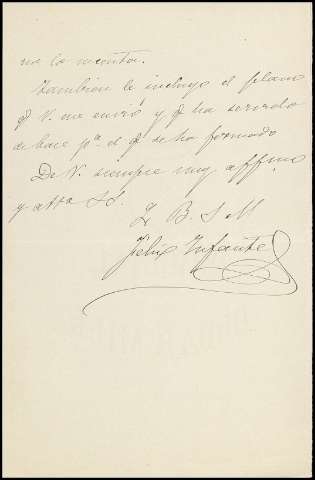 no la cuenta.
También le incluyo el plano
q̃ V. me envió y q̃ ha servido
de base pª el q̃ se ha formado
De V. siempre muy affmo
y atto SS.
Q B S M
Félix Infante